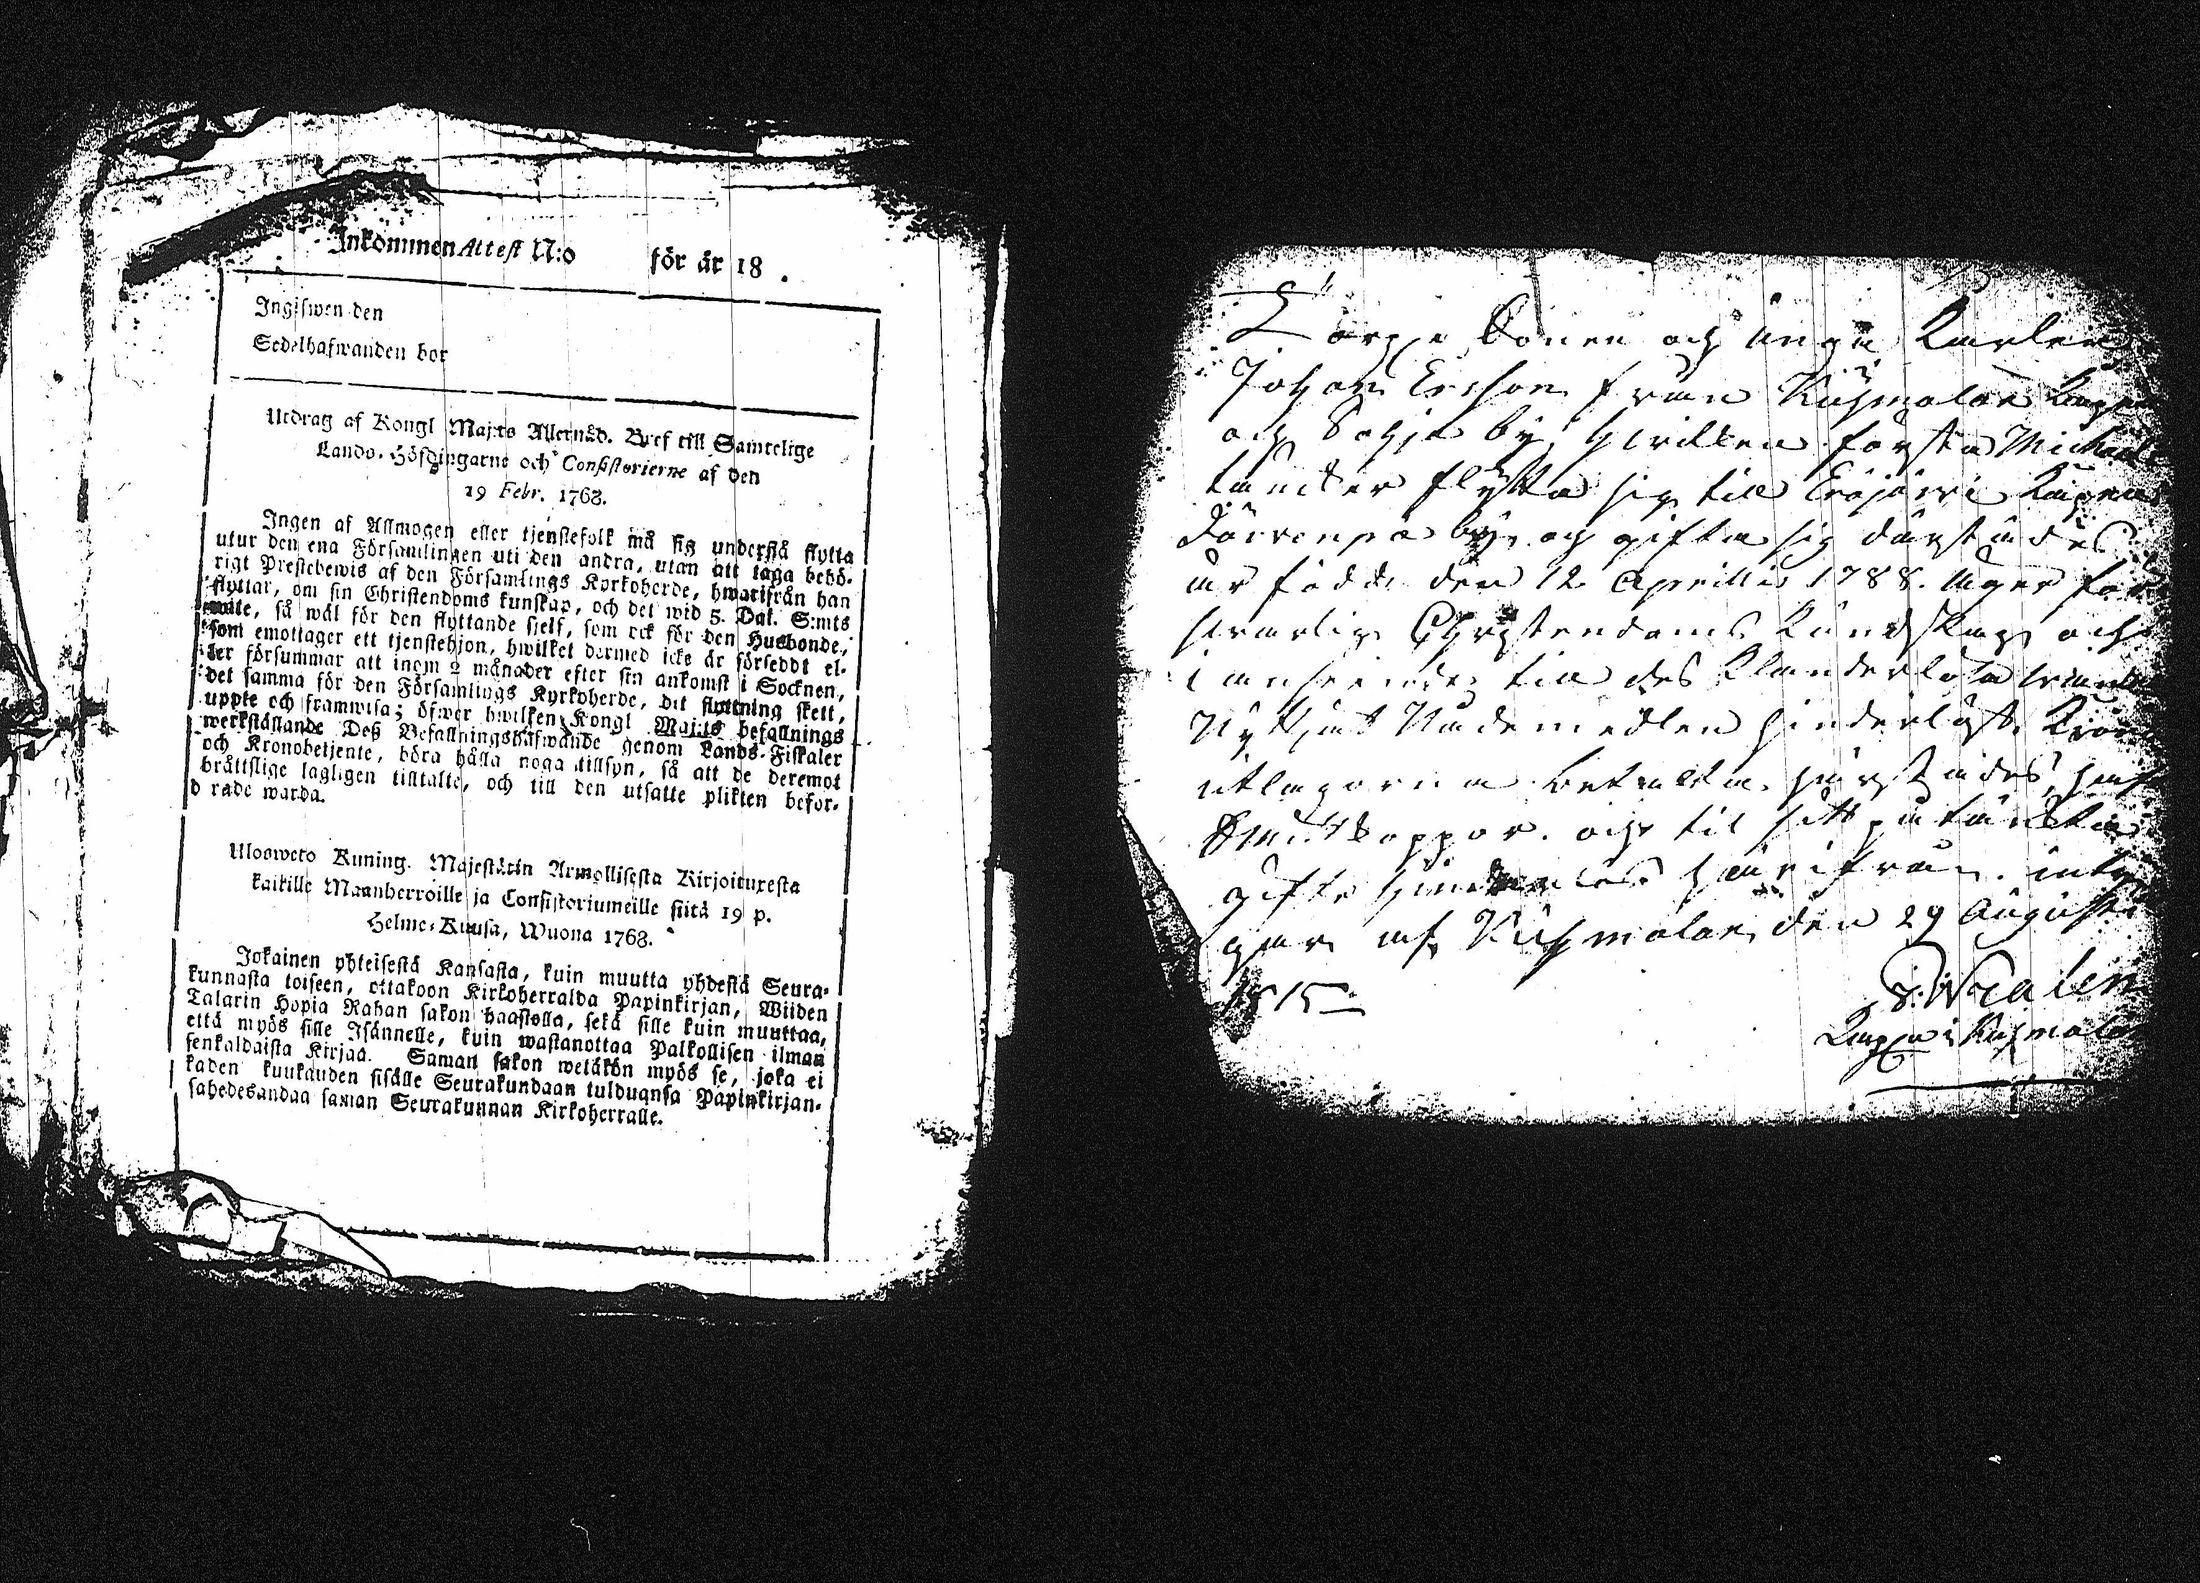 Inkommen Attest N:o för år 18 .
Ingifwen den
Sedelhafwanden bor
Utdrag af Kongl Maj:ts Allernåd. Bref till Samtelige
Lands-Höfdingarne och Consistorierne af den
19 Febr. 1768.
Ingen af Allmogen eller tjenstefolk må sig understå flytta
utur den ena Församlingen uti den andra, utan att taga behö-
rigt Prestebewis af den Församlings Kyrkoherde, hwarifrån han
flyttar, om sin Christendoms kunskap, och det wid 5. Dal. S:mts
wite, så wäl för den flyttande sjelf, som ock för den Husbonde,
som emottager ett tjenstehjon, hwilket dermed icke är försedt el-
ler försummar att inom 2 månader efter sin ankomst i Socknen,
det samma för den Församlings Kyrkoherde, dit flyttning skett,
uppte och framwisa; öfwer hwilken Kongl Maj:ts befallnings
werkställande Deß Befallningshafwande genom Lands-Fiskaler
och Kronobetjente, böra hålla noga tillsyn, så att de deremot
bråttslige lagligen tilltalte, och till den utsatte plikten befor-
d rade warda.
Uloswető Kuning. Majestätin Armollisesta Kirjoituxesta
kaikille Maanherroille ja Consistoriumeille siitä 19 p.
Helme-Kuusa, Wuona 1768.
Jokainen yhteisestä Kansasta, kuin muutta yhdestä Seura-
kunnasta toiseen, ottakoon Kirkoherralda Papinkirjan, Wiiden
Talarin Hopia Rahan sakon haastolla, sekä sille kuin muuttaa,
että myös sille Isännelle, kuin wastanottaa Palkollisen ilman
senkaldaista Kirjaa. Saman sakon wetäkön myös se, joka ei
kaden kuukauden sisälle Seurakundaan tulduansa Papinkirjan-
sahedesandaa saman Seurakunnan Kirkoherralle.
Sonen och unga Karlen
Johan Ericson från Kuhmalax
och Sahja by, hvilken första Michaeli
tänker flytta sig till Eräjärvi
by och gifta sig därstädes
är född den 12 Aprillis 1788. äger för
svarlig Christendoms Kundskap och
i anseende till des Klanderlösa
Nyttjat Nademedlen hinderlöst.
utlagorna betalta härstädes,
Skyttskoppor. och til sitt påtänkta
gifte hinderlös härifrån.
af Kuhmalax den 29 Augusti
1815
Kuhmalax